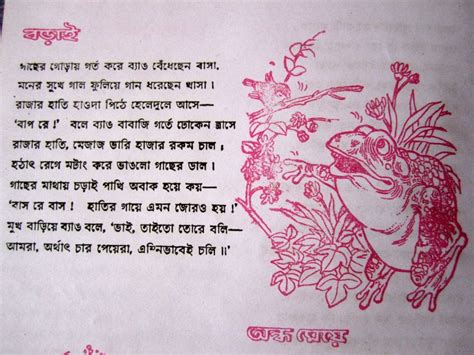 বড়াই
গাছের গোড়ায় গর্ত করে ব্যাঙ বেঁধেছেন বাসা,
মনের সুখে গাল ফুলিয়ে গান ধরেছেন খাসা।
রাজার হাতি হাওদা পিঠে হেলেদুলে আসে—
'বাপ রে !' বলে ব্যাঙ বাবাজি গর্তে ঢোকেন ত্রাসে
রাজার হাতি, মেজাজ ভারি হাজার রকম চাল ;
হঠাৎ রেগে মটাং করে ভাঙলো গাছের ডাল ।
গাছের মাথায় চড়াই পাখি অবাক হয়ে কয়—
'বাস রে বাস ! হাতির গায়ে এমন জোরও হয় !'
মুখ বাড়িয়ে ব্যাঙ বলে, 'ভাই, তাইতো তোরে বলি—
আমরা, অর্থাৎ চার পেয়েরা, এম্নিভাবেই চলি ॥'
অন্ধ মেয়ে